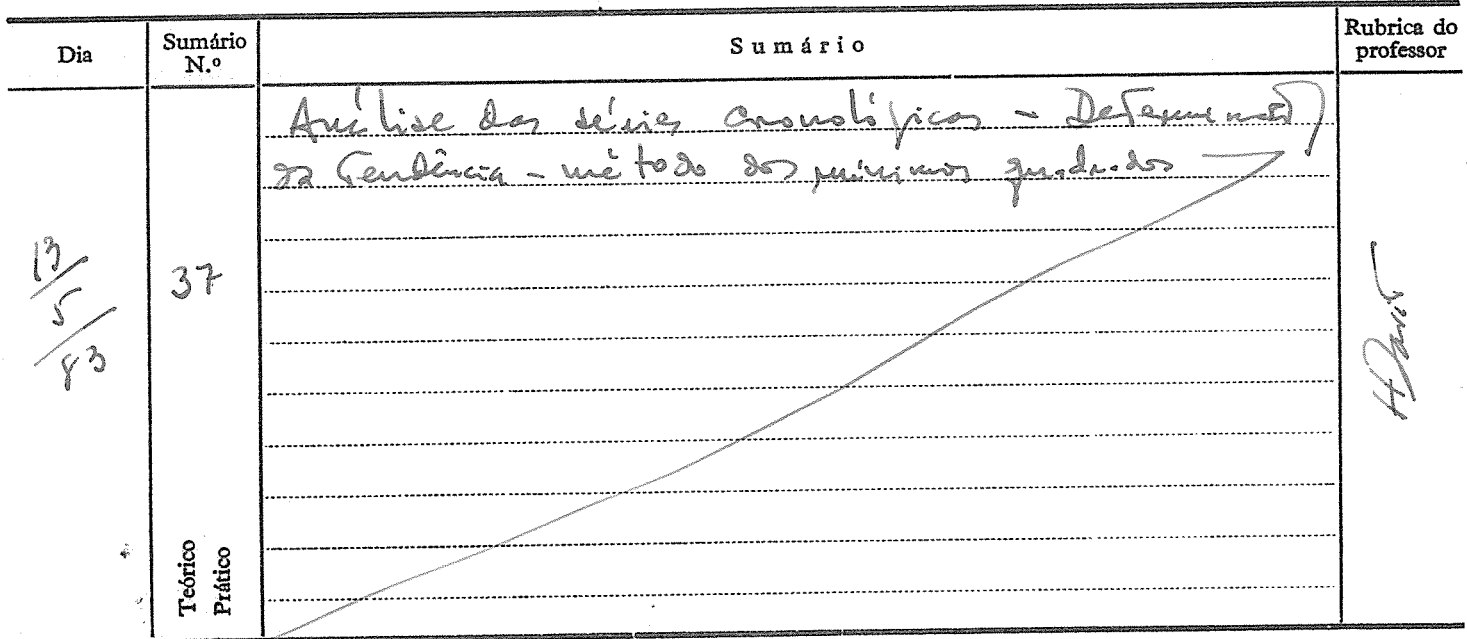 Dia
Sumário N.º
Sumário
Rubrica do professor
13/5/83
37
Teórico
Prático
Análise das séries cronológicas - Determinação
da Tendência - método dos mínimos quadrados